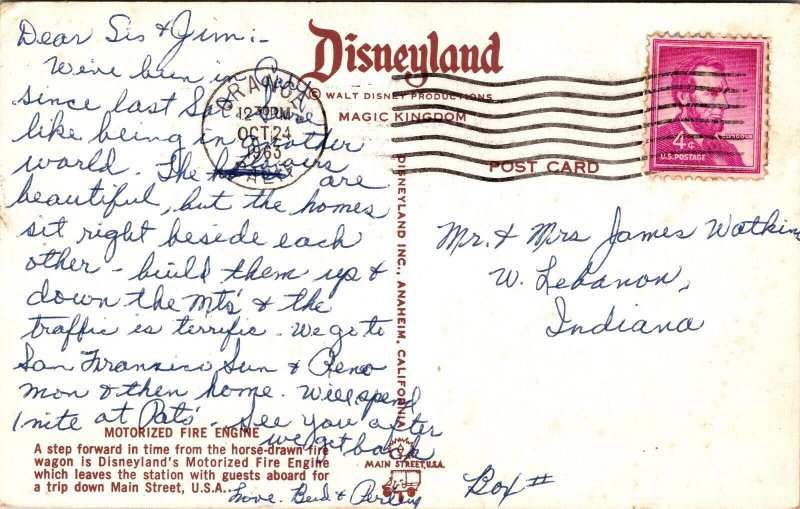 Dear Sis & Jim:-
We've been in Calif
since last Sat
like being in another
world. The are
beautiful, but the homes
sit right beside each
other - build them up &
down the Mts' & the
traffic is terrific. We go to
San Fransisco Sun & Reno
Mon & then home. Will spend
1 nite at Pats'. See you after
we get back
Love. &
Disneyland
© WALT DISNEY PRODUCTIONS
MAGIC KINGDOM
POST CARD
ORANGE
12 PM
OCT 24
1963
CALIF
4¢
LINCOLN
U.S. POSTAGE
DISNEYLAND INC., ANAHEIM, CALIFORNIA
Mr. & Mrs James Watkins
W. Lebanon,
Indiana
Box #
MOTORIZED FIRE ENGINE
A step forward in time from the horse-drawn fire
wagon is Disneyland's Motorized Fire Engine
which leaves the station with guests aboard for
a trip down Main Street, U.S.A.
MAIN STREET, U.S.A.